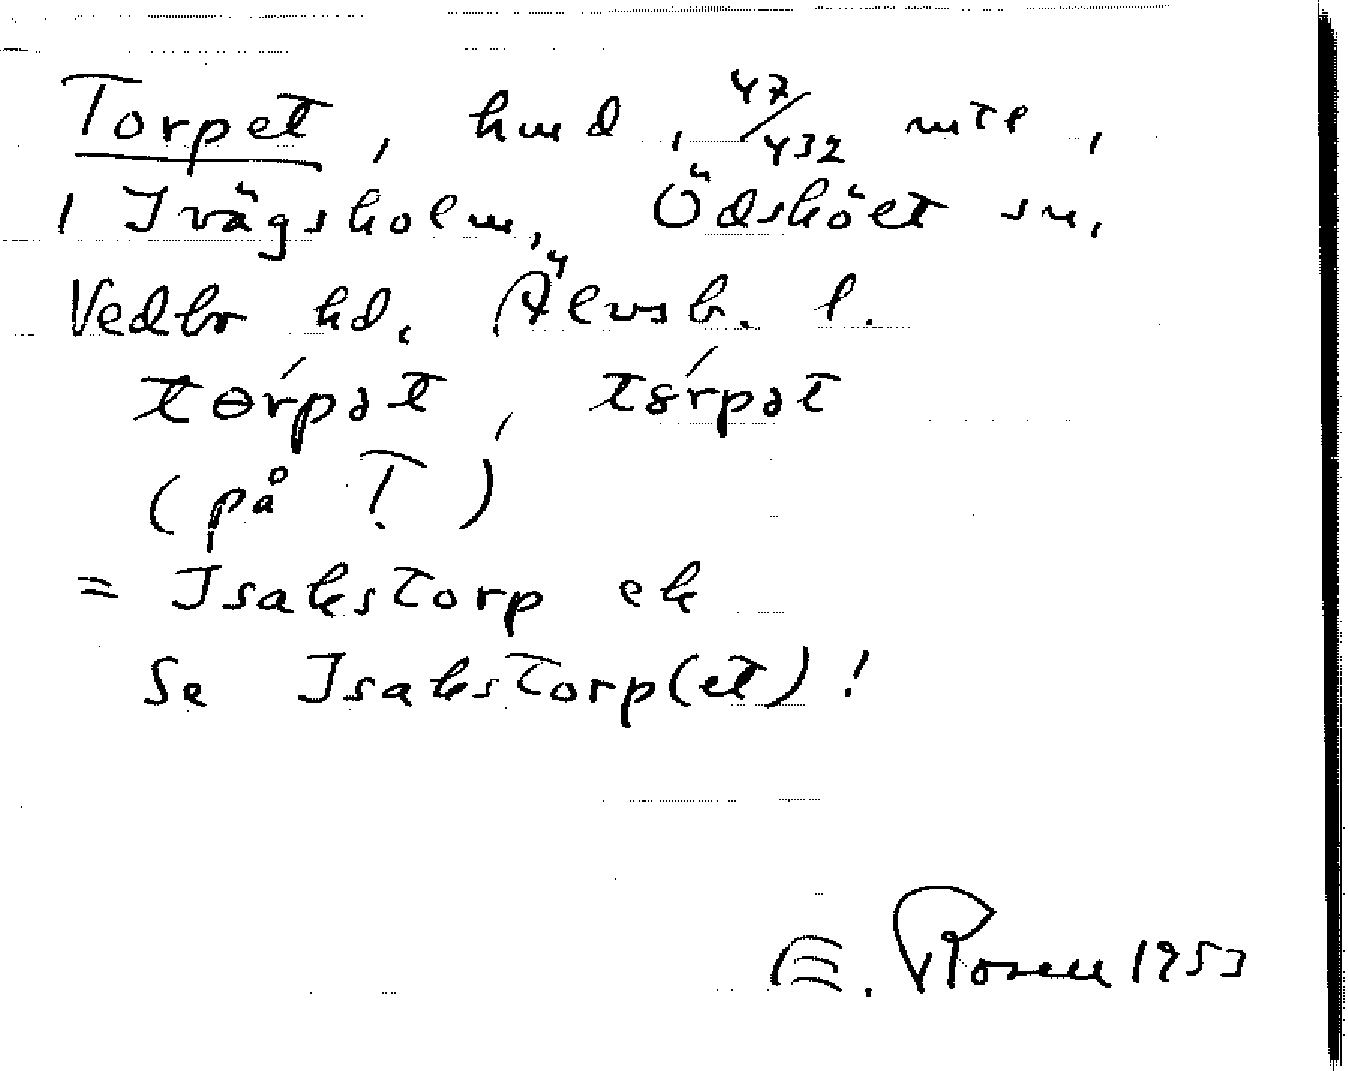 Torpet, hmd, 47/432 mtl,
i Ivägsholm, Ödsköet sn,
Vedbo hd, Älvsb. l.
tɵ́rpət, tɵ́rpət
(på T.)
= Isakstorp ek
Se Isakstorp(et)!
E. Rosell 1953